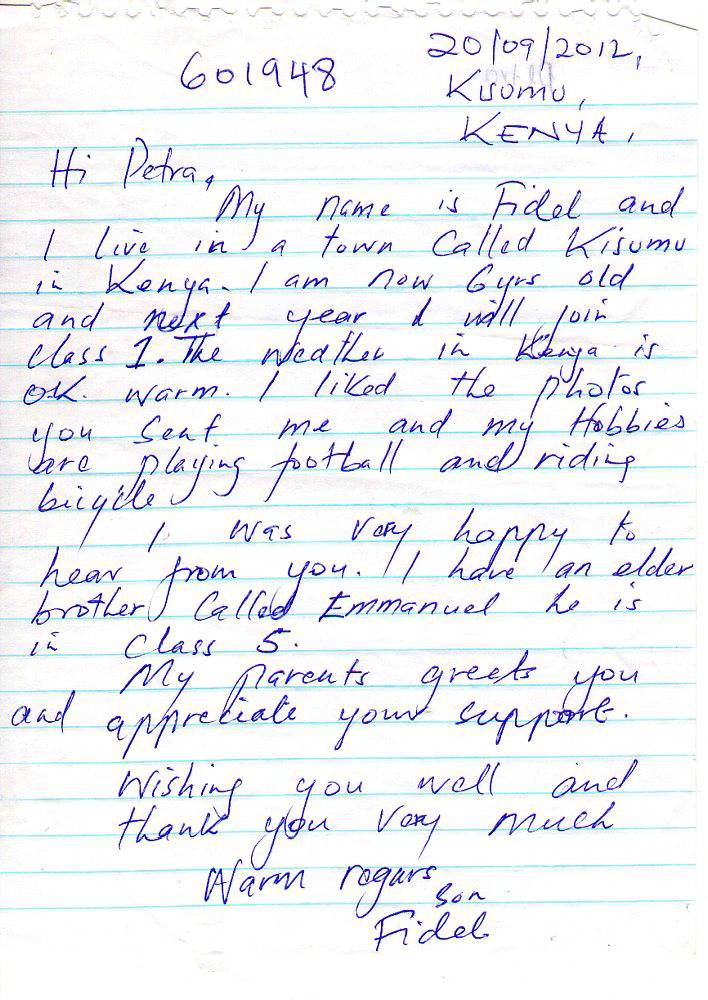 20/09/2012,
601948
Kisumu,
KENYA,
Hi Petra,
My name is Fidel and
I live in a town Called Kisumu
in Kenya. I am now 6yrs old
and next year I will join
Class 1. The weather in Kenya is
OK. warm. I liked the photos
you Sent me and my Hobbies
are playing football and riding
bicycle
I was very happy to
hear from you. I have an elder
brother Called Emmanuel he is
in Class 5.
My parents greets you
and appreciate your support.
Wishing you well and
thank you very much
Warm regurs
Son
Fidel